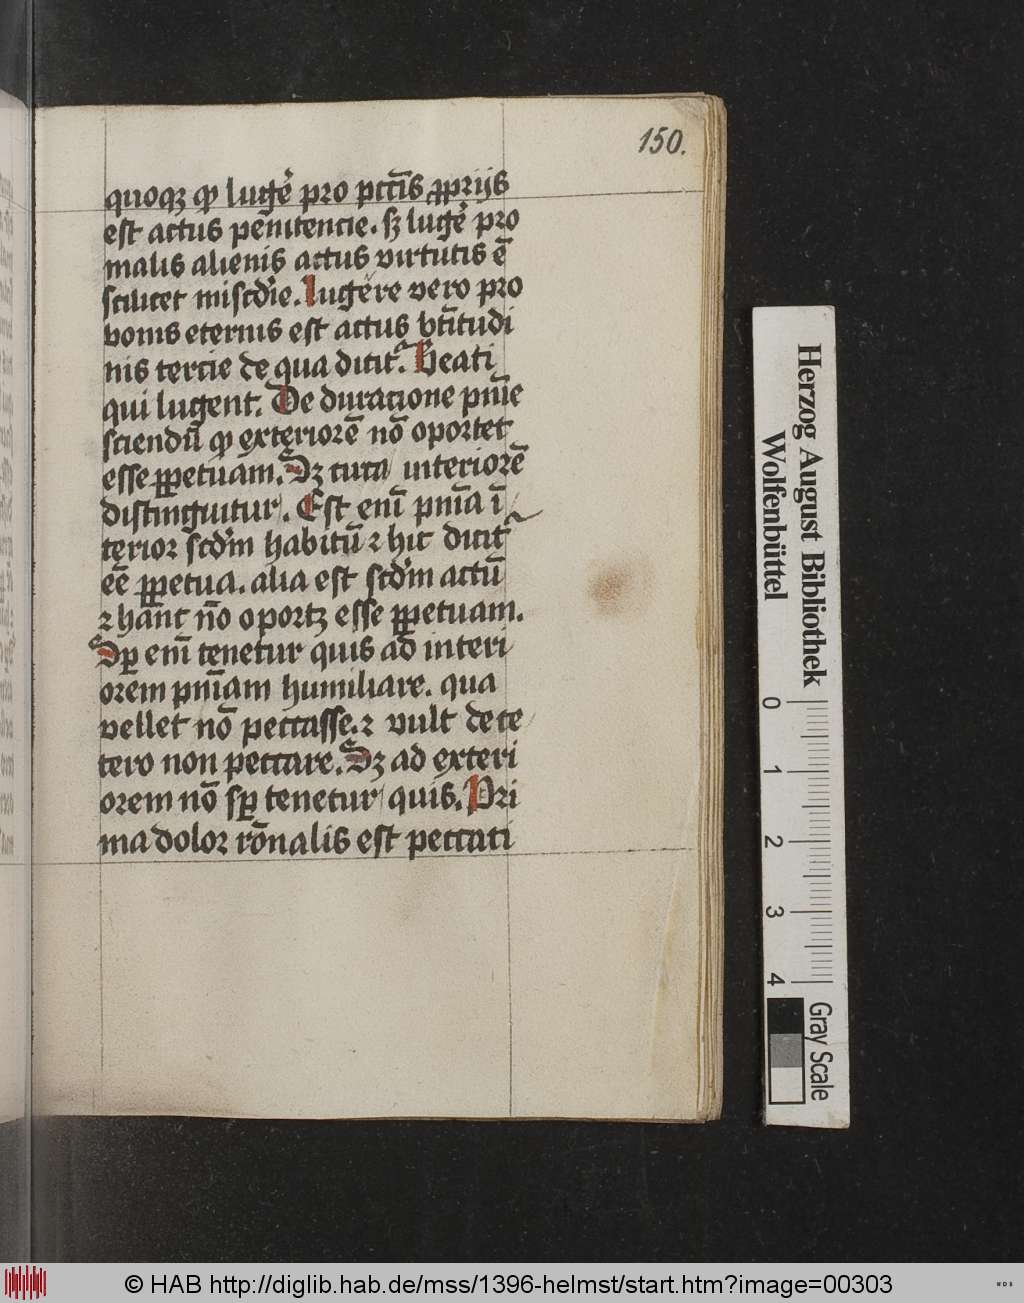 150.
quoqꝫ ꝙ lugē pro pct̄is ꝓprijs
est actus penītencie. sꝫ lugē pro
malis alienis actus virtutis ē
scilicet misc̄die. lugēre vero pro
bonis eternis est actus bt̄itudi
nis tercie de qua dicit᷑. Beati
qui lugent. De duracione pn̄ie
sciendū ꝙ exteriorē nō oportet
esse ꝑpetuam. Sꝫ circa interiorē
distinguitur. Est enī pn̄ia ī
terior scd̄m habitū ⁊ hic dicit᷑
eē ꝑpetua. alia est scd̄m actū
⁊ hanc nō oportꝫ esse ꝑpetuam.
Sꝑ enī tenetur quis ad interi
orem pn̄iam humiliare. qua
vellet nō peccasse. ⁊ vult de ce
tero non peccare. Sꝫ ad exteri
orem nō sꝑ tenetur quis. Pri
ma dolor rōnalis est peccati
Herzog August Bibliothek
Wolfenbüttel
0 1 2 3 4
Gray Scale
© HAB http://diglib.hab.de/mss/1396-helmst/start.htm?image=00303